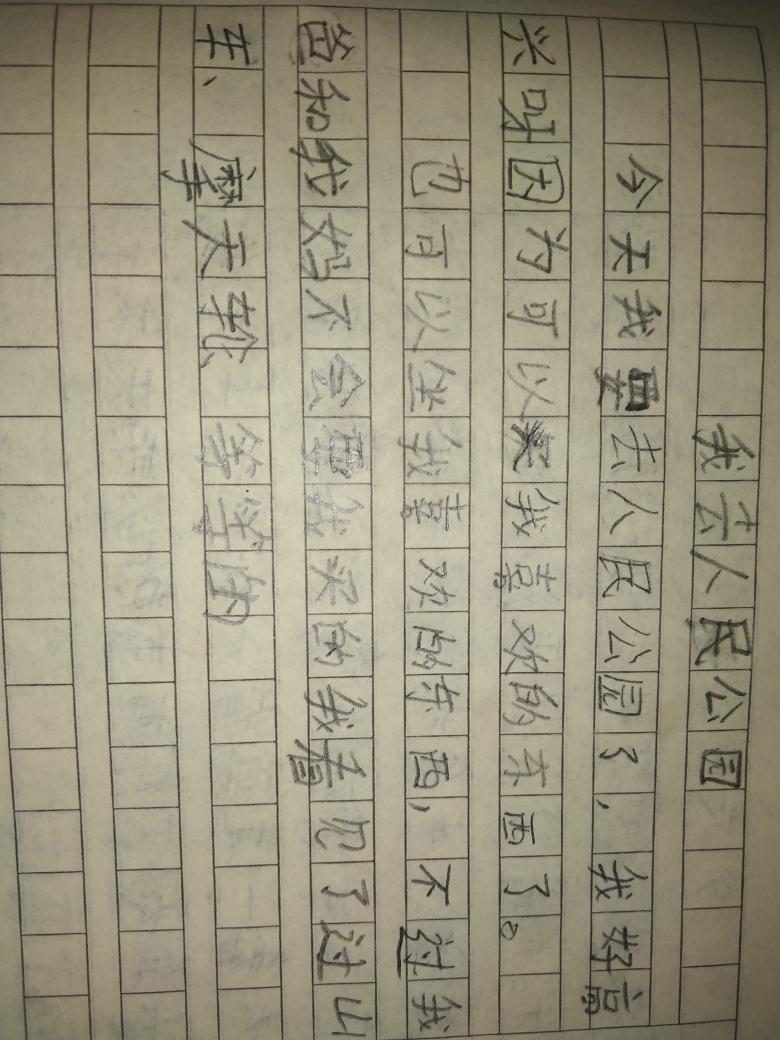 我去人民公园
今天我要去人民公园了，我好高
兴呀因为可以买我喜欢的东西了。
也可以坐我喜欢的东西，不过我
爸和我妈不会要我买的我看见了过山
车、摩天轮等等的